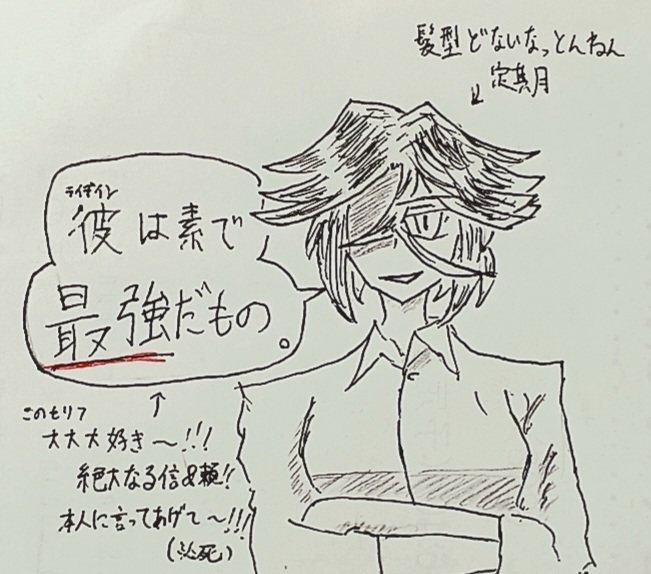 髪型どないなっとんねん
定期月
ライザイン
彼は素で
最強だもの。
このセリフ
大大大好き〜!!!
絶大なる信&頼!!
本人に言ってあげて〜!!!
(必死)